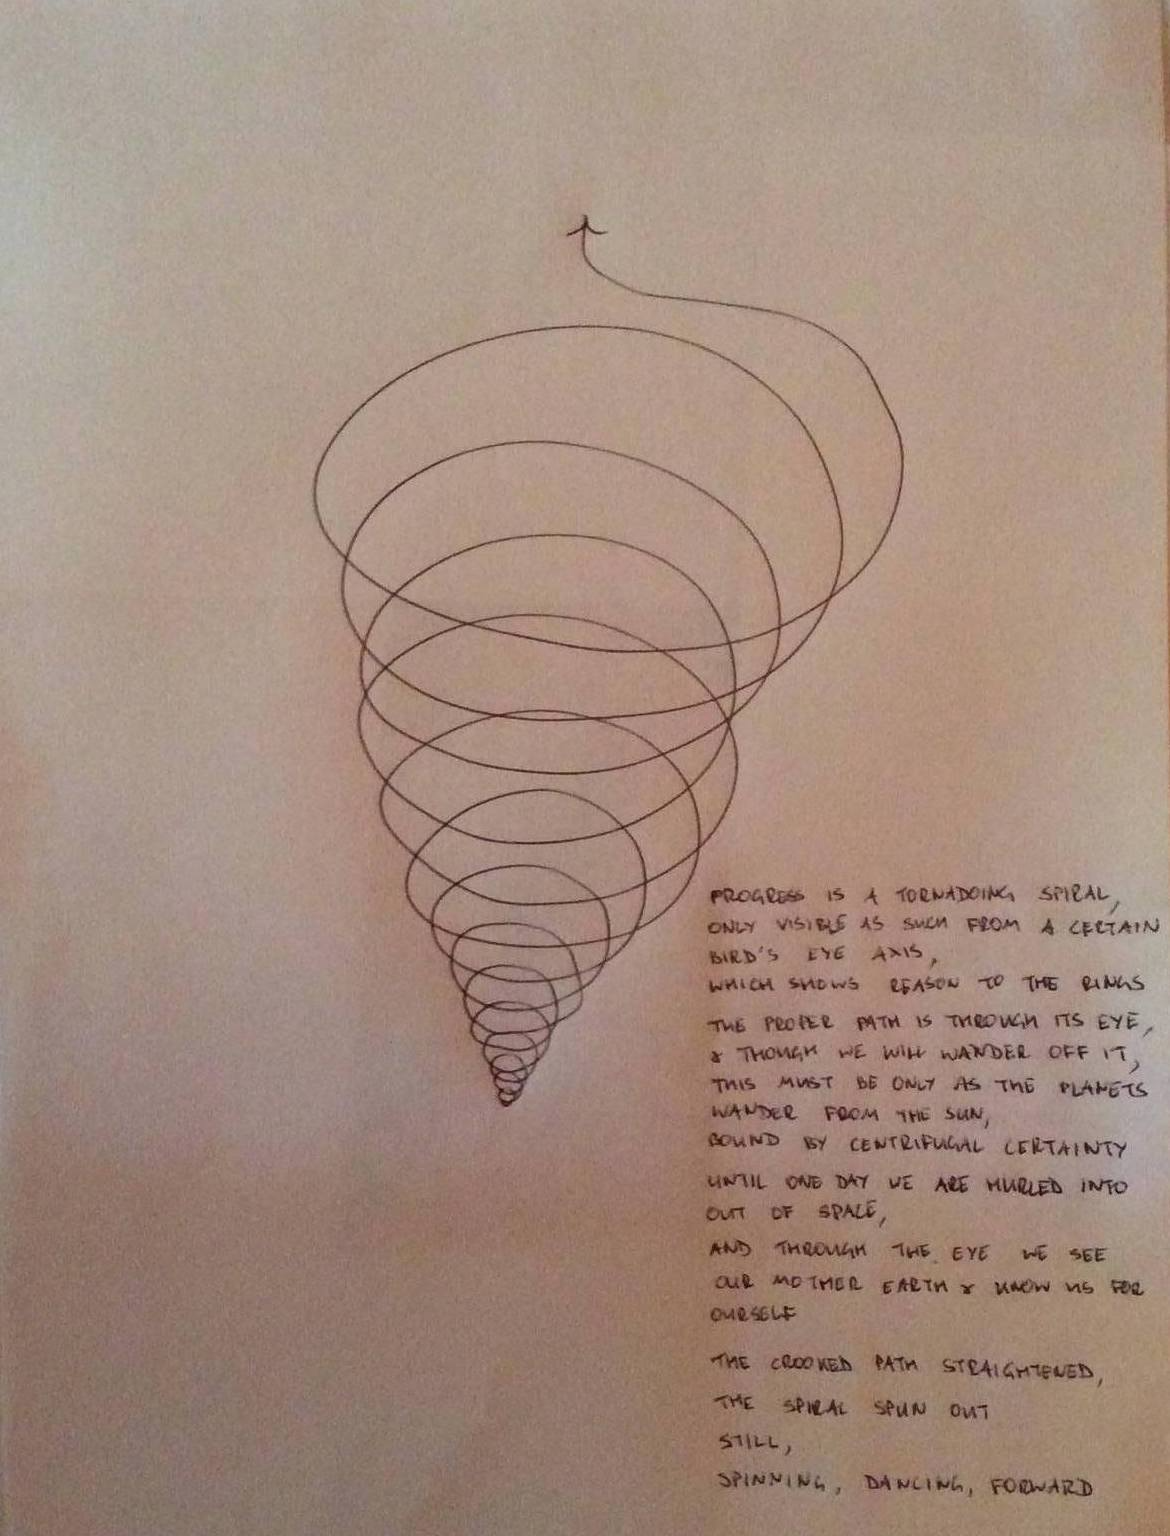 PROGRESS IS A TORNADOING SPIRAL,
ONLY VISIBLE AS SUCH FROM A CERTAIN
BIRD'S EYE AXIS,
WHICH SHOWS REASON TO THE RINGS
THE PROPER PATH IS THROUGH ITS EYE,
& THOUGH WE WILL WANDER OFF IT,
THIS MUST BE ONLY AS THE PLANETS
WANDER FROM THE SUN,
BOUND BY CENTRIFUGAL CERTAINTY
UNTIL ONE DAY WE ARE HURLED INTO
OUT OF SPACE,
AND THROUGH THE EYE WE SEE
OUR MOTHER EARTH & KNOW US FOR
OURSELF
THE CROOKED PATH STRAIGHTENED,
THE SPIRAL SPUN OUT
STILL,
SPINNING, DANCING, FORWARD